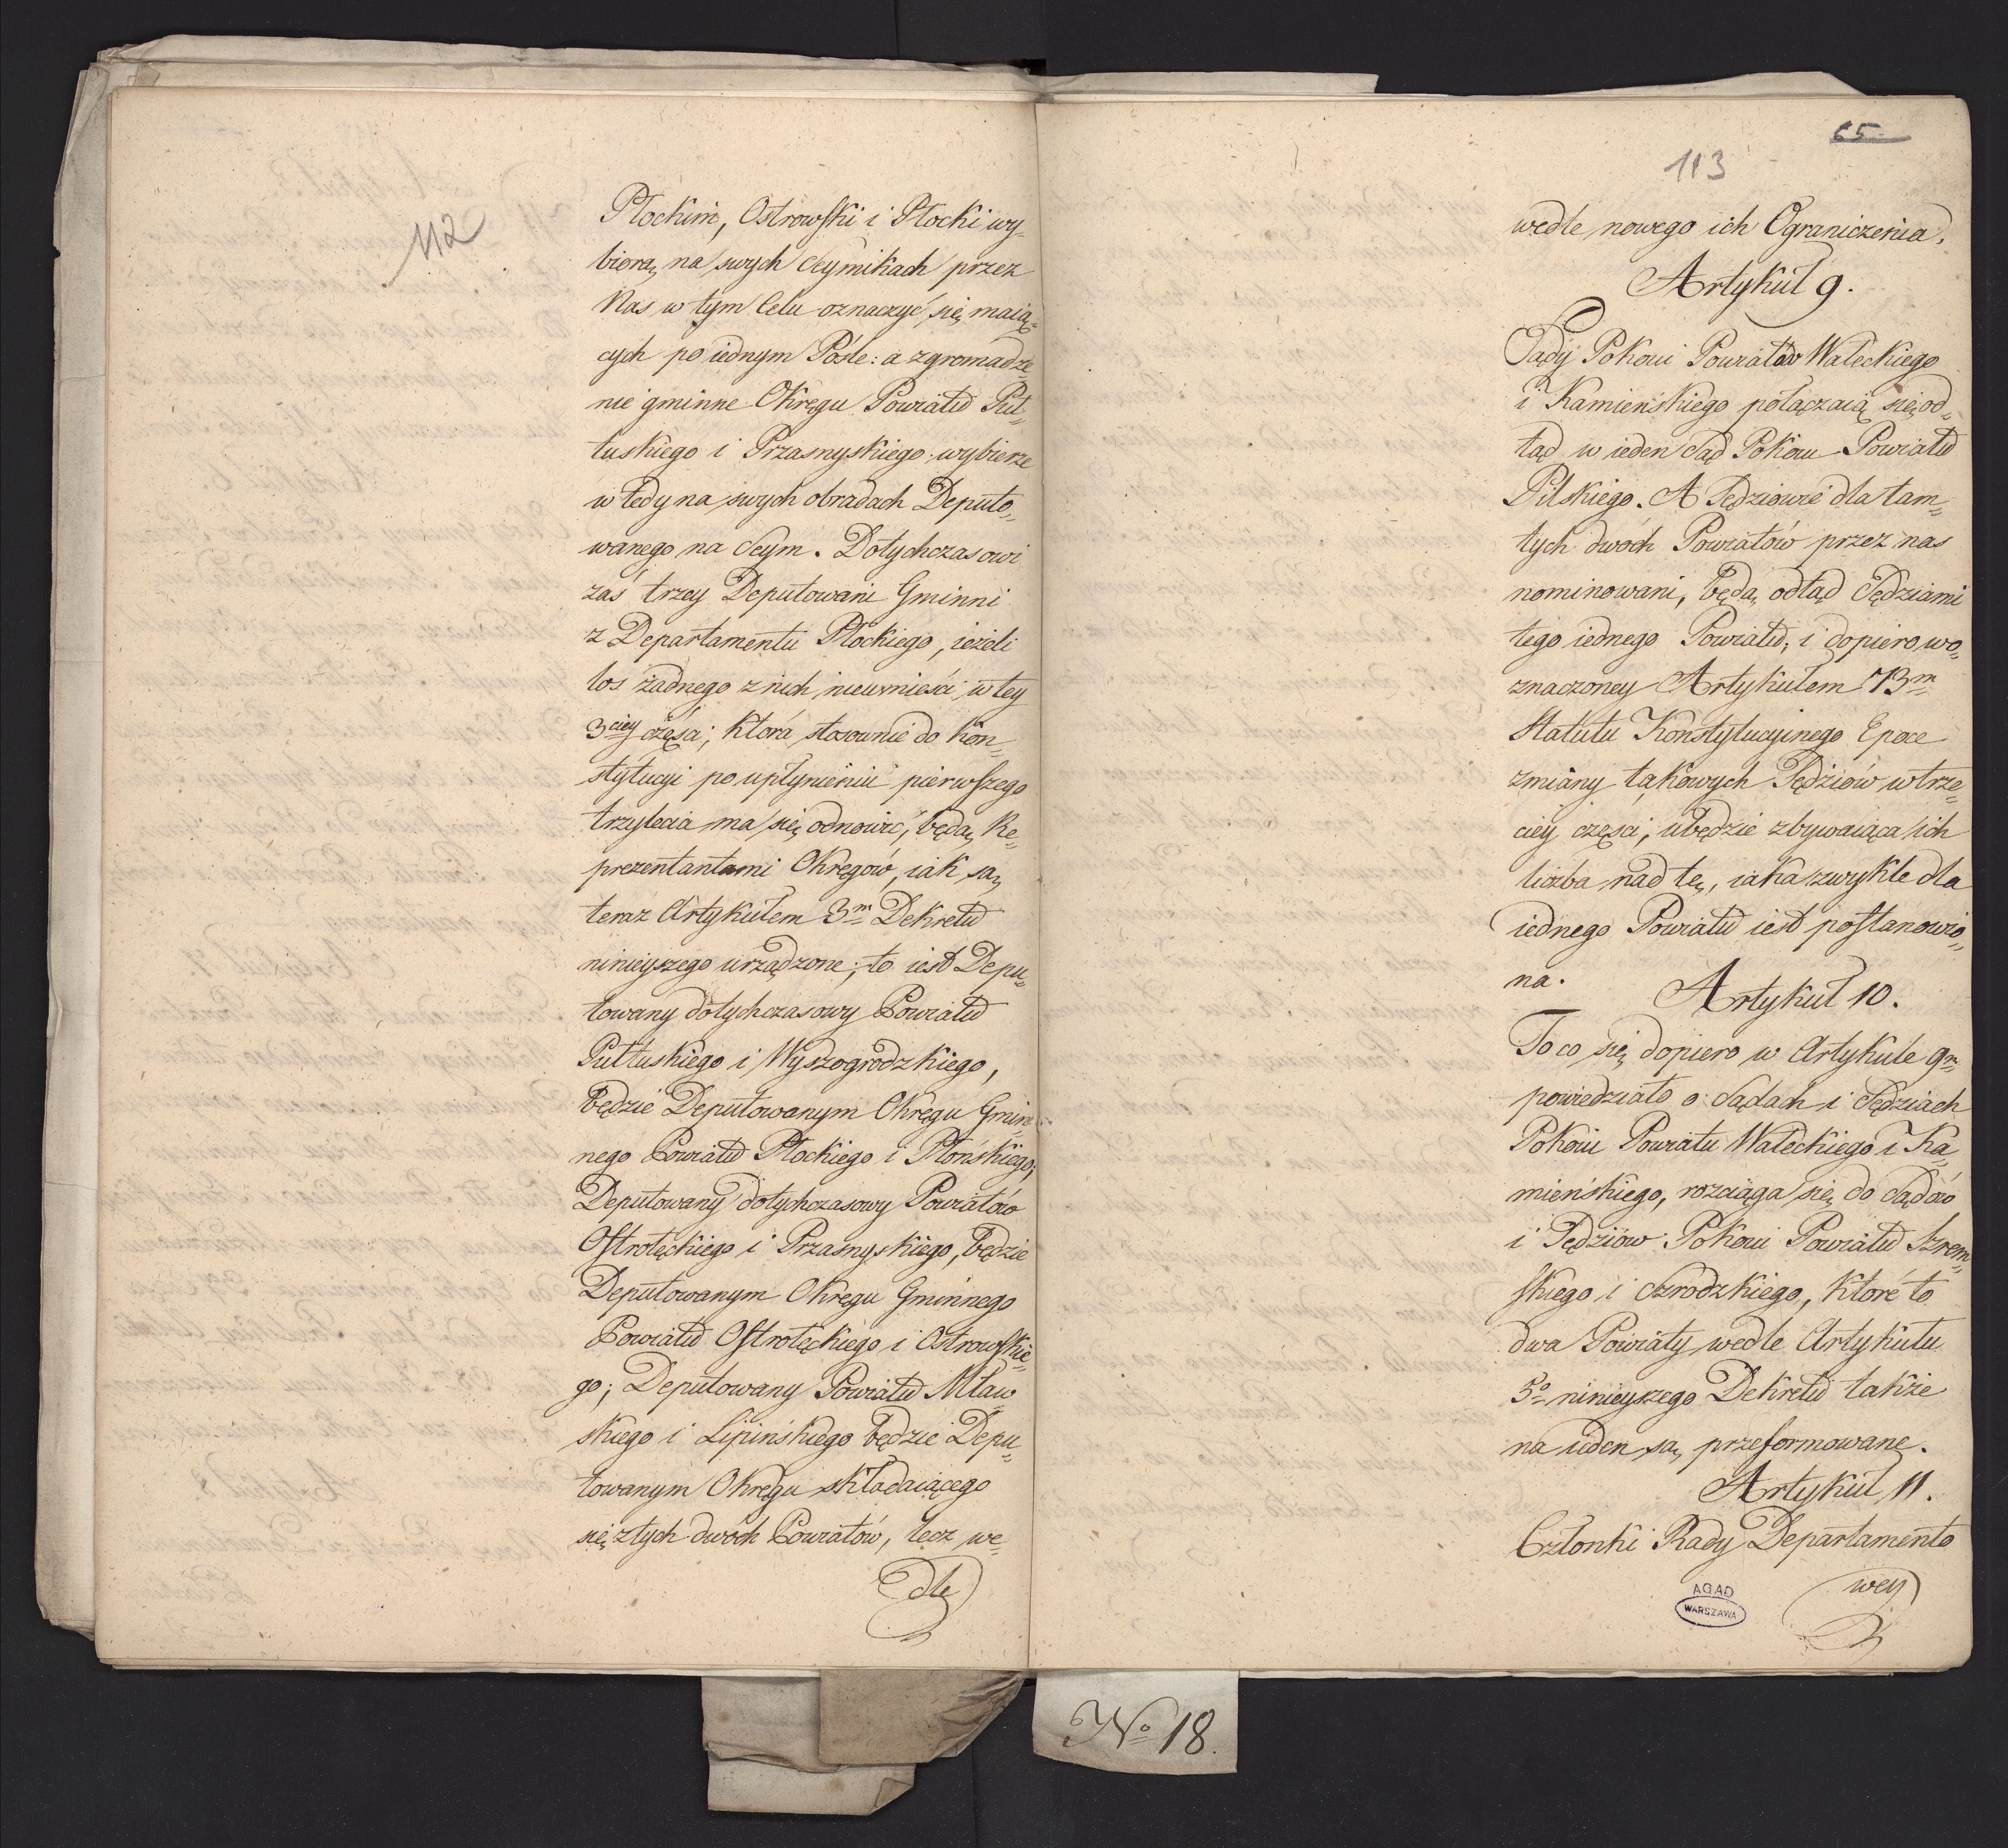 112
Płockim, Ostrowski i Płocki wy-
biorą na swych Seymikach przez
Nas w tym Celu oznaczyć się maią-
cych po iednym Pośle: a zgromadze-
nie gminne Okręgu Powiatu Puł-
tuskiego i Przasnyskiego wybierze
wtedy na swych obradach Deputo-
wanego na Seym. Dotychczasowi
zaś trzey Deputowani Gminni
z Departamentu Płockiego, ieżeli
los żadnego z nich nieumieści w tey
3ciey części, która stosownie do Kon-
stytucyi po upłynieniu pierwszego
trzylecia ma się odnowić, będą Re-
prezentantami Okręgów, iak są
teraz Artykułem 3m Dekretu
ninieyszego urządzone; to iest Depu-
towany dotychczasowy Powiatu
Pułtuskiego i Wyszogrodzkiego,
będzie Deputowanym Okręgu Gmin-
nego Powiatu Płockiego i Płońskiego;
Deputowany dotychczasowy Powiatów
Ostrołęckiego i Przasnyskiego, będzie
Deputowanym Okręgu Gminnego
Powiatu Ostrołęckiego i Ostrowskie-
go; Deputowany Powiatu Mław
skiego i Lipińskiego będzie Depu-
towanym Okręgu składaiącego
się z tych dwóch Powiatów, lecz we-
dle
65
113
wedle nowego ich Ograniczenia.
Artykuł 9.
Sądy Pokoiu Powiatów Wałeckiego
i Kamieńskiego połączaią się od-
tąd w ieden Sąd Pokoiu Powiatu
Pilskiego. A Sędziowie dla tam-
tych dwóch Powiatów przez nas
nominowani, będą odtąd Sędziami
tego iednego Powiatu, i dopiero wo-
znaczoney Artykułem 73m
Statutu Konstytucyinego Epoce
zmiany takowych Sędziów w trze-
ciey części, ubędzie zbywaiąca ich
liczba nad tę, iaka zwykle dla
iednego Powiatu iest postanowio-
na.
Artykuł 10.
To co się dopiero w Artykule 9m
powiedziało o Sądach i Sędziach
Pokoiu Powiatu Wałeckiego i Ka-
mieńskiego, rozciąga się do Sądów
i Sędziów Pokoiu Powiatu Szrem-
skiego i Szrodzkiego, które to
dwa Powiaty wedle Artykułu
5o ninieyszego Dekretu także
na ieden są przeformowane.
Artykuł 11.
Członki Rady Departamento
wey
AGAD
WARSZAWA
No 18.